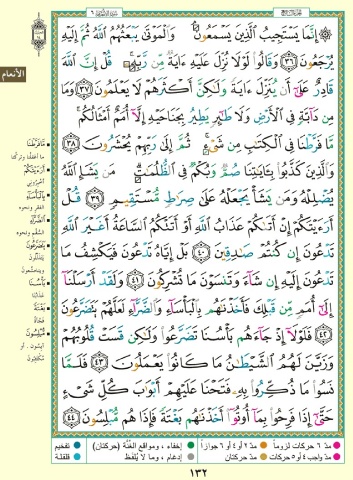 سورة الأنعام ٦
الجزء السابع
الأنعام
إِنَّمَا يَسْتَجِيبُ الَّذِينَ يَسْمَعُونَ وَالْمَوْتَىٰ يَبْعَثُهُمُ اللَّهُ ثُمَّ إِلَيْهِ
يُرْجَعُونَ ٣٦ وَقَالُوا لَوْلَا نُزِّلَ عَلَيْهِ ءَايَةٌ مِّن رَّبِّهِ قُلْ إِنَّ اللَّهَ
قَادِرٌ عَلَىٰ أَن يُنَزِّلَ ءَايَةً وَلَٰكِنَّ أَكْثَرَهُمْ لَا يَعْلَمُونَ ٣٧ وَمَا
مِن دَابَّةٍ فِي الْأَرْضِ وَلَا طَائِرٍ يَطِيرُ بِجَنَاحَيْهِ إِلَّا أُمَمٌ أَمْثَالُكُم
مَّا فَرَّطْنَا فِي الْكِتَابِ مِن شَيْءٍ ثُمَّ إِلَىٰ رَبِّهِمْ يُحْشَرُونَ ٣٨
وَالَّذِينَ كَذَّبُوا بِـَٔايَاتِنَا صُمٌّ وَبُكْمٌ فِي الظُّلُمَاتِ مَن يَشَإِ اللَّهُ
يُضْلِلْهُ وَمَن يَشَأْ يَجْعَلْهُ عَلَىٰ صِرَاطٍ مُّسْتَقِيمٍ ٣٩ قُلْ
أَرَءَيْتَكُمْ إِنْ أَتَاكُمْ عَذَابُ اللَّهِ أَوْ أَتَتْكُمُ السَّاعَةُ أَغَيْرَ اللَّهِ
تَدْعُونَ إِن كُنتُمْ صَادِقِينَ ٤٠ بَلْ إِيَّاهُ تَدْعُونَ فَيَكْشِفُ مَا
تَدْعُونَ إِلَيْهِ إِن شَاءَ وَتَنسَوْنَ مَا تُشْرِكُونَ ٤١ وَلَقَدْ أَرْسَلْنَا
إِلَىٰ أُمَمٍ مِّن قَبْلِكَ فَأَخَذْنَاهُم بِالْبَأْسَاءِ وَالضَّرَّاءِ لَعَلَّهُمْ يَتَضَرَّعُونَ
٤٢ فَلَوْلَا إِذْ جَاءَهُم بَأْسُنَا تَضَرَّعُوا وَلَٰكِن قَسَتْ قُلُوبُهُمْ
وَزَيَّنَ لَهُمُ الشَّيْطَانُ مَا كَانُوا يَعْمَلُونَ ٤٣ فَلَمَّا
نَسُوا مَا ذُكِّرُوا بِهِ فَتَحْنَا عَلَيْهِمْ أَبْوَابَ كُلِّ شَيْءٍ
حَتَّىٰ إِذَا فَرِحُوا بِمَا أُوتُوا أَخَذْنَاهُم بَغْتَةً فَإِذَا هُم مُّبْلِسُونَ ٤٤
مَا فَرَّطْنَا
ما أغفلنا وتركنا
أَرَءَيْتَكُمْ
أخبروني
بِالْبَأْسَاءِ
الفقر ونحوه
الضَّرَّاءِ
السّقم ونحوه
يَتَضَرَّعُونَ
يتذلّلون
ويتخشّعون
بَأْسُنَا
عذابنا
بَغْتَةً
فجأة
مُبْلِسُونَ
آيسون ، أو
مكتئبون
مدّ ٦ حركات لزوماً
مدّ ٢ أو ٤ أو ٦ جوازاً
إخفاء ، ومواقع الغُنّة (حركتان)
تفخيم
مدّ واجب ٤ أو ٥ حركات
مدّ حركتان
إدغام ، وما لا يُلفظ
قلقلة
١٣٢